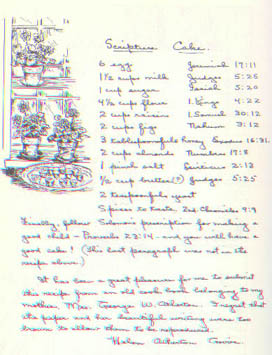 Scripture Cake.
6 egg Jeremiah 17:11
1½ cups milk Judges 5:25
1 cup sugar Jeremiah 6:20
4½ cups flour 1. Kings 4:22
2 cups raisins 1. Samuel 30:12
2 cups figs Nahum 3:12
3 tablespoonfuls honey Exodus 16:31.
2 cups almonds Numbers 17:8
1 pinch salt Leviticus 2:13
½ cup butter(?) Judges 5:25
2 teaspoonfuls yeast
Spices to taste, 2nd. Chronicles 9:9
Finally, follow Solomon's prescription for making a
good child - Proverbs 23:14 - and you will have a
good cake! (This last paragraph was not in the
recipe above.)
It has been a great pleasure for me to submit
this recipe from an old cook book belonging to my
mother, Mrs. George W. Atherton. I regret that
the paper and her beautiful writing were too
brown to allow them to be reproduced.
Helen Atherton Govier.